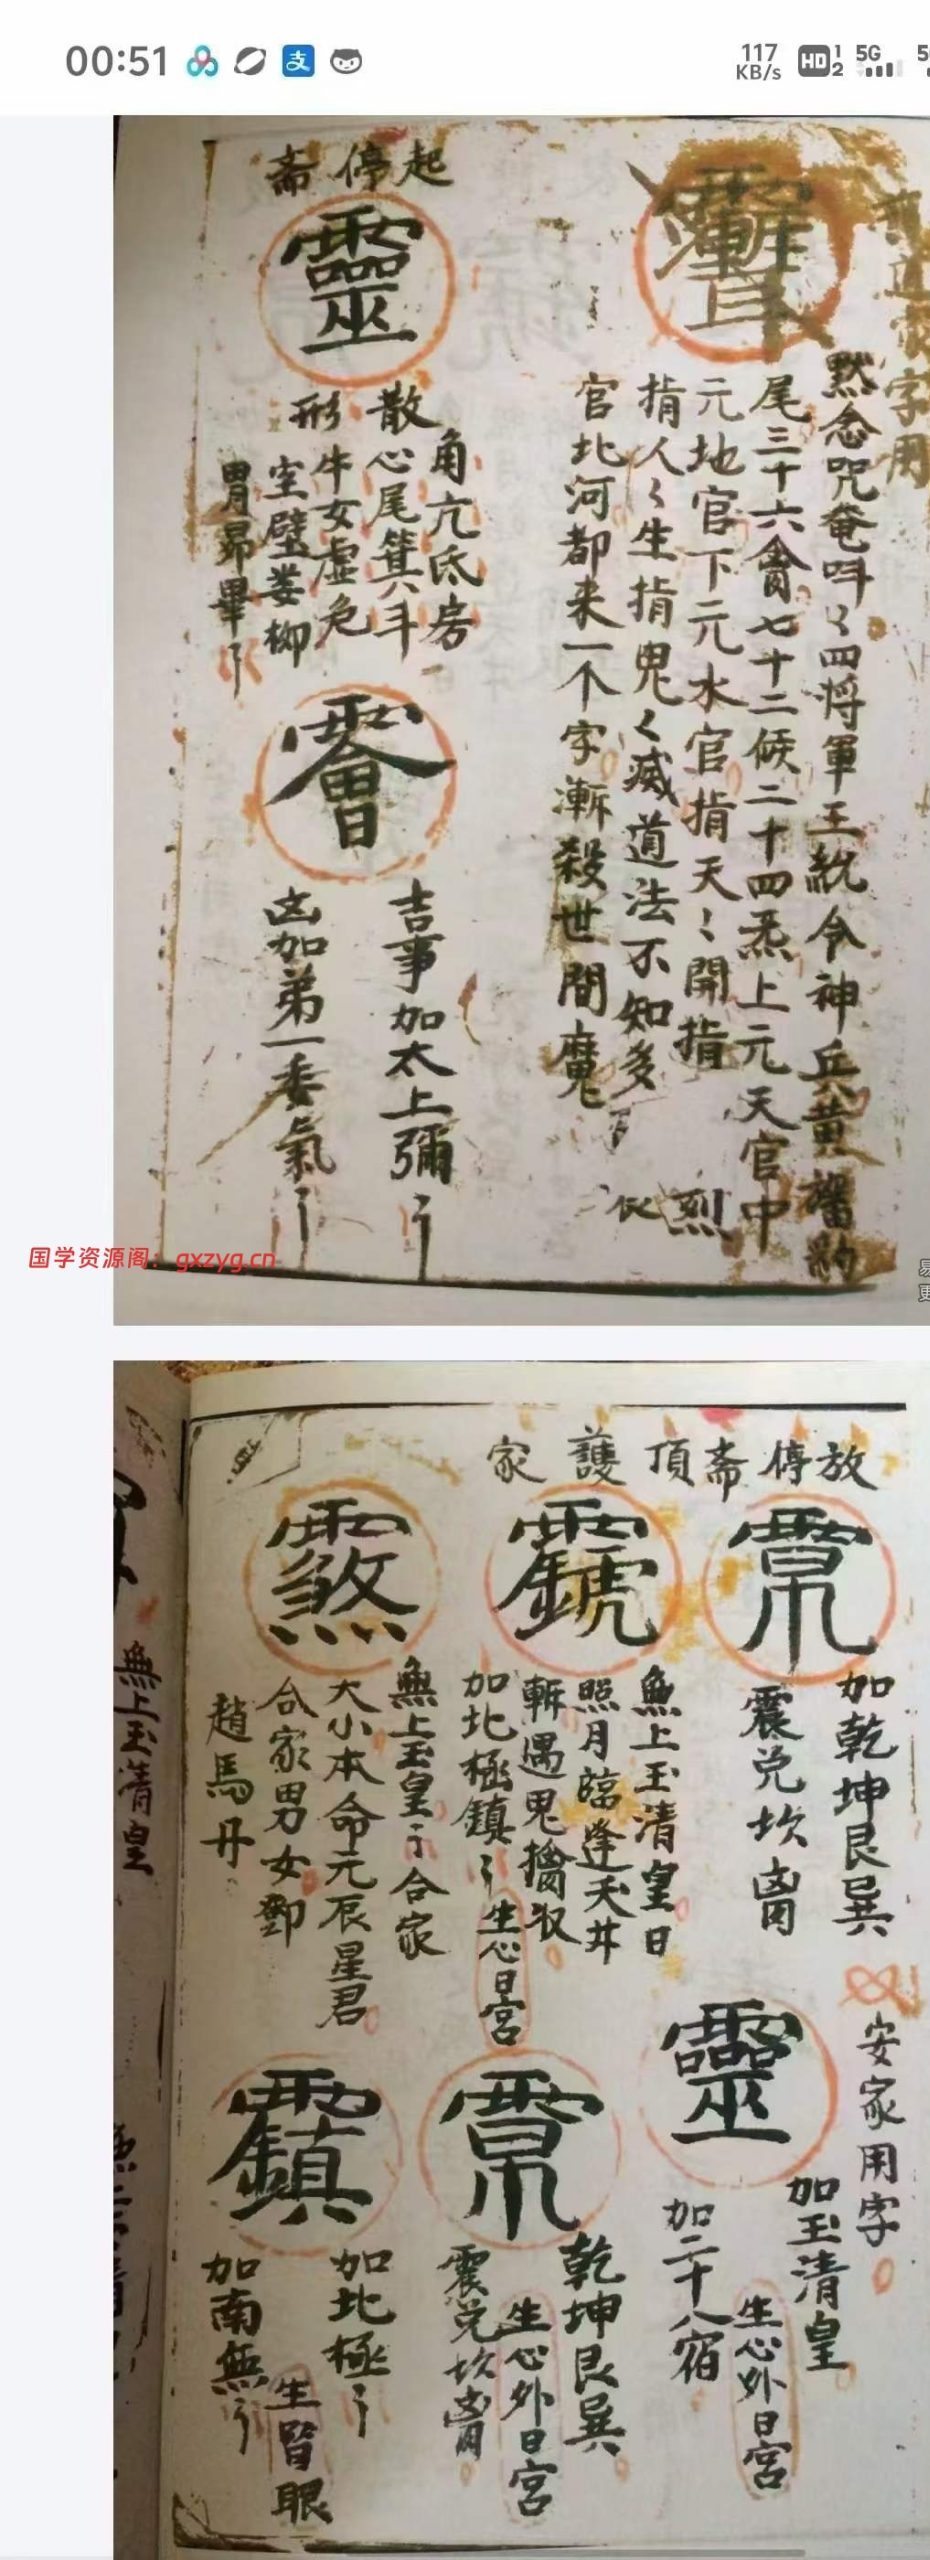 00:51
117 KB/s
HD 1 2
5G
字用
默念咒奄吽〻四将軍王統令神兵黄旛豹
尾三十六禽七十二候二十四炁上元天官中
元地官下元水官指天〻開指
指人〻生指鬼〻滅道法不知多
官北河都来一个字漸殺世間魔
烈
起停斋
靈
角亢氐房
散心尾箕斗
形牛女虚危
室壁娄柳
胃昴畢
吉事加太上彌
凶加弟一委氣
国学资源阁：gxzyg.cn
放停斋頂護家
加乾坤艮巽
震兑坎离
無上玉清皇日
照月臨逢天井
斬遇鬼擒收
加北極鎮
生心日宮
無上玉皇合家
大小本命元辰星君
合家男女鄧
趙馬丹
安家用字
靈
加玉清皇
生心外日宮
加二十八宿
乾坤艮巽
生心外日宮
震兑坎离
加北極
生皆眼
加南無
無上玉清皇